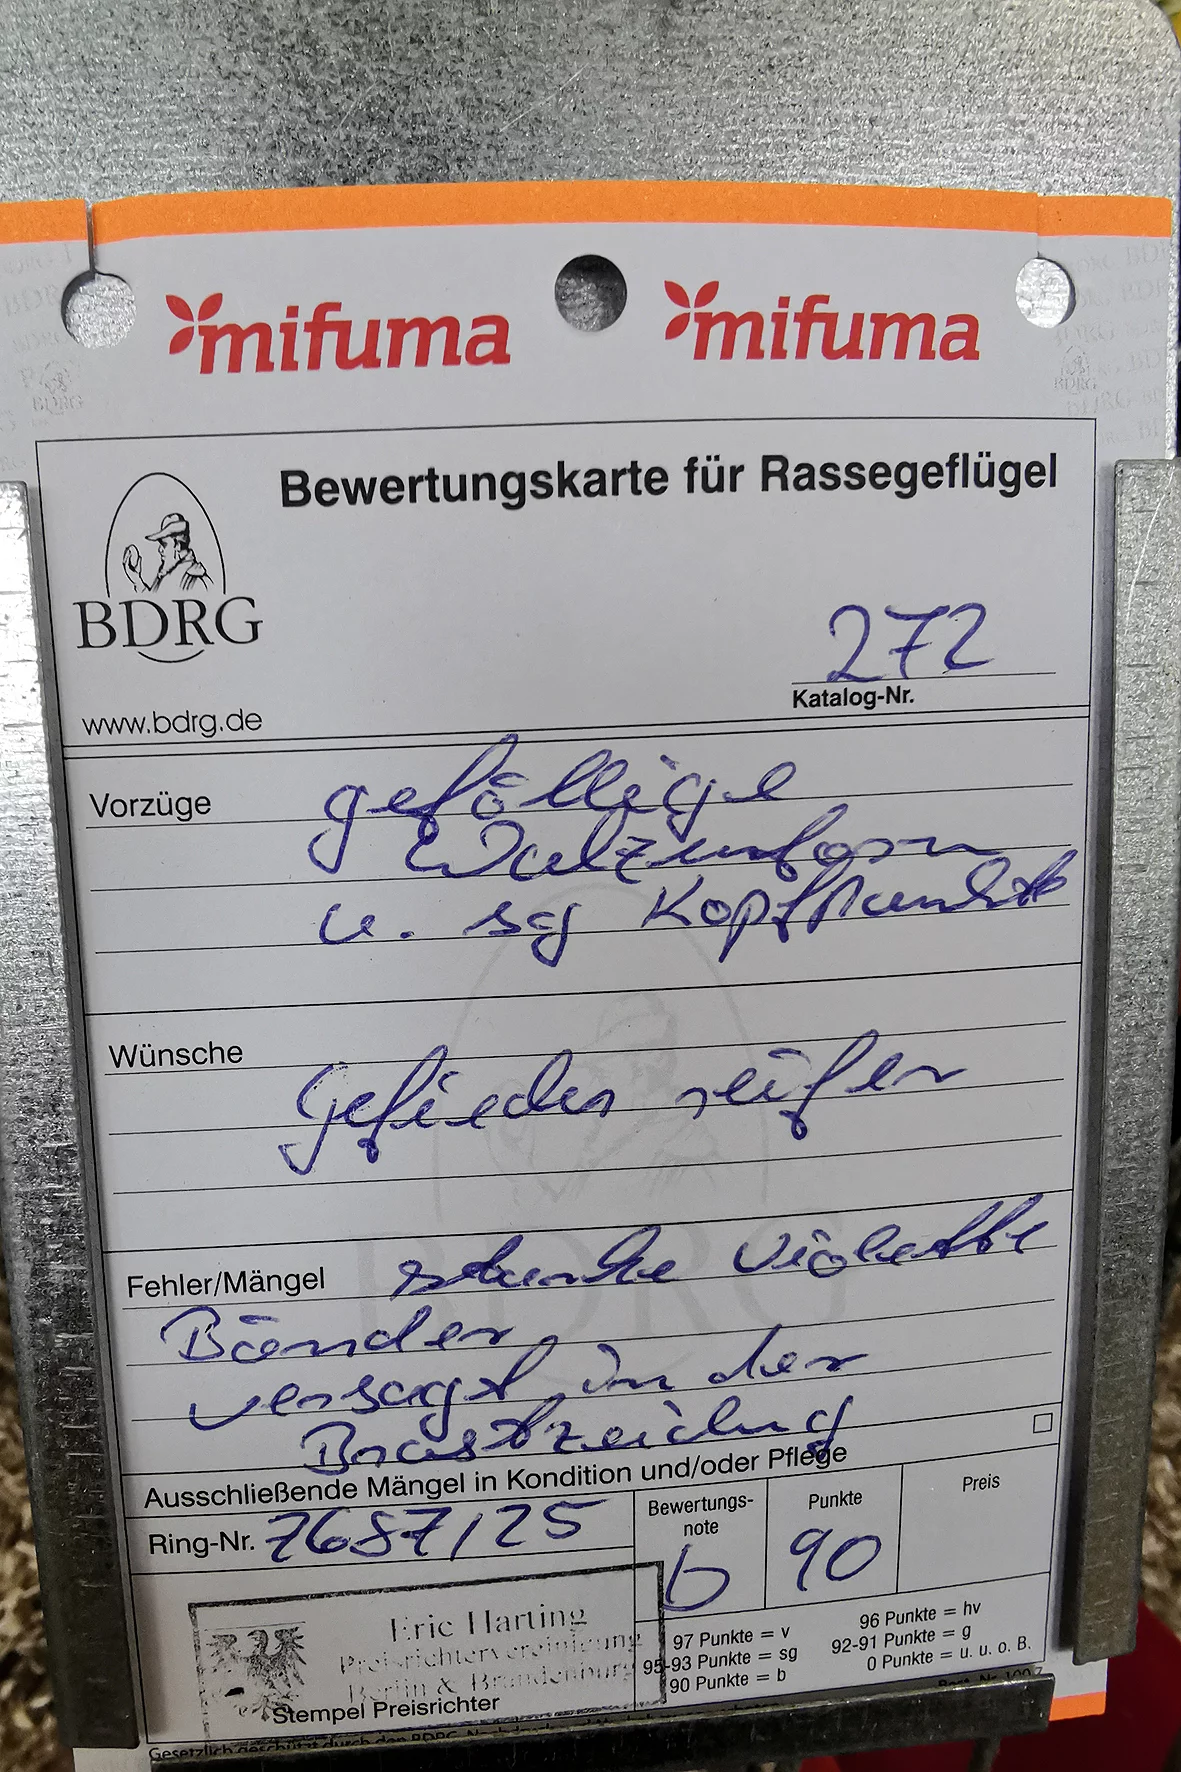 mifuma mifuma
Bewertungskarte für Rassegeflügel
BDRG
www.bdrg.de
272
Katalog-Nr.
Vorzüge gefällige
Walzenform
u. sg Kopfpunkte
Wünsche
Gefieder reifer
Fehler/Mängel starke violette
Bänder
versagt in der
Brustzeichng
Ausschließende Mängel in Kondition und/oder Pflege
Ring-Nr. 7687/25
Bewertungs-
note
b
Punkte
90
Preis
Eric Harting
Preisrichtervereinigung
Berlin & Brandenburg
Stempel Preisrichter
97 Punkte = v
96 Punkte = hv
95-93 Punkte = sg
92-91 Punkte = g
90 Punkte = b
0 Punkte = u. u. o. B.
Gesetzlich geschützt durch den BDRG.